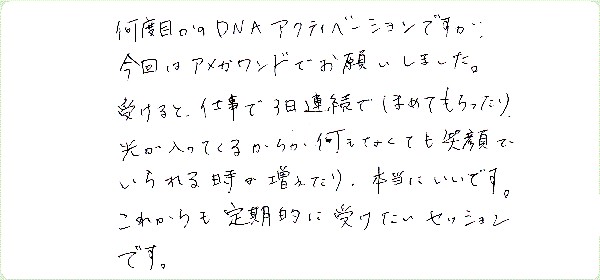 何度目かのDNAアクティベーションですが、
今回はアメガワンドでお願いしました。
受けると、仕事で3日連続でほめてもらったり、
光が入ってくるからか何もなくても笑顔で
いられる時が増えたり、本当にいいです。
これからも定期的に受けたいセッション
です。